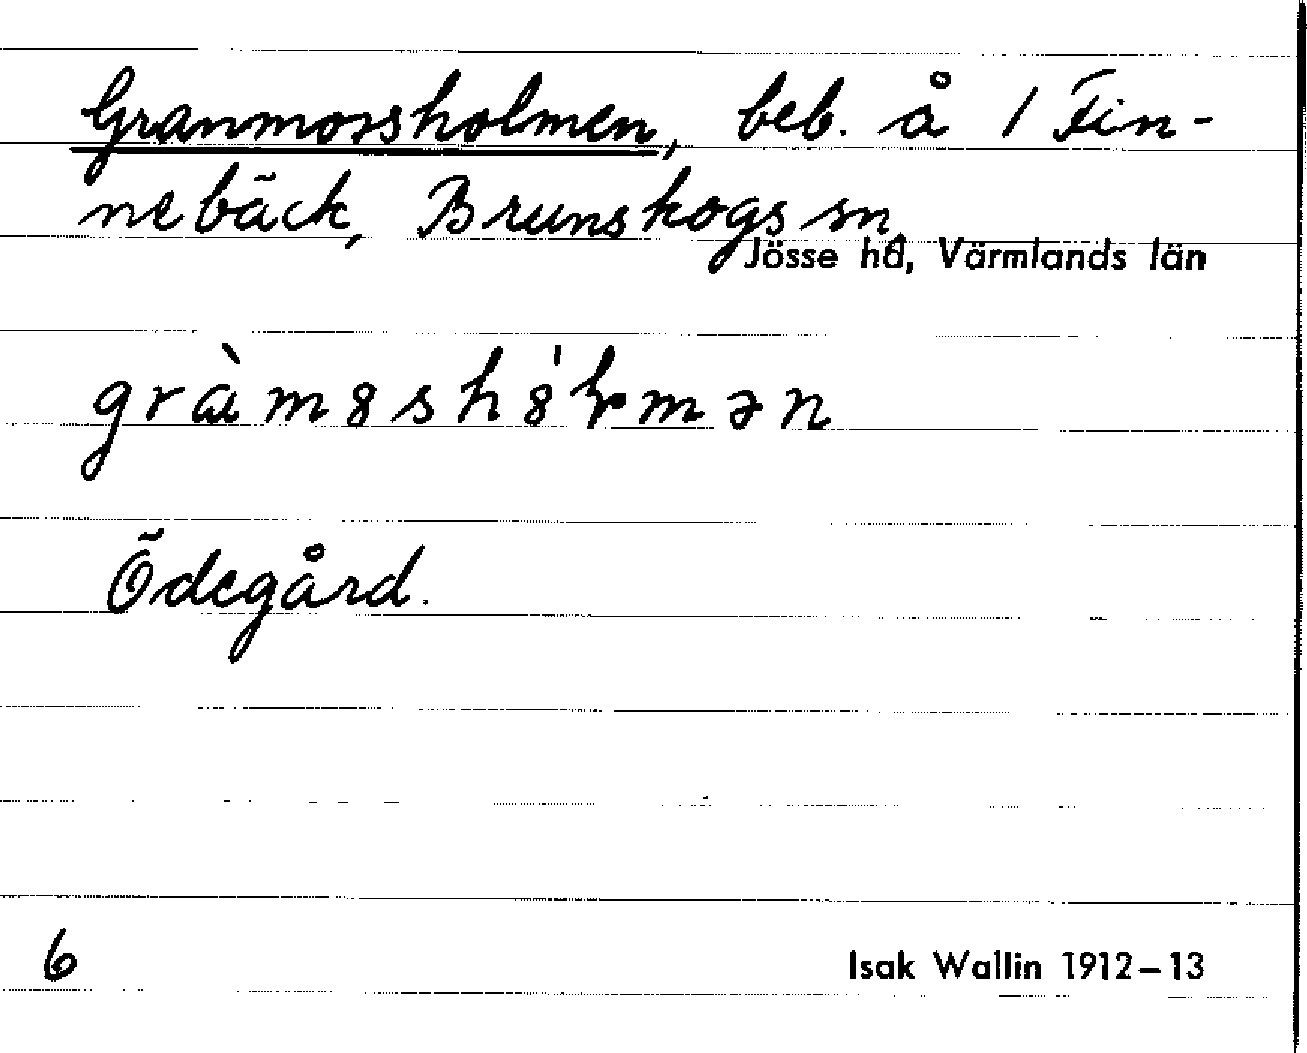 Granmossholmen, beb. å 1 Fin-
nebäck, Brunskogs sn,
Jösse hd, Värmlands län
Ödegård.
6
Isak Wallin 1912–13